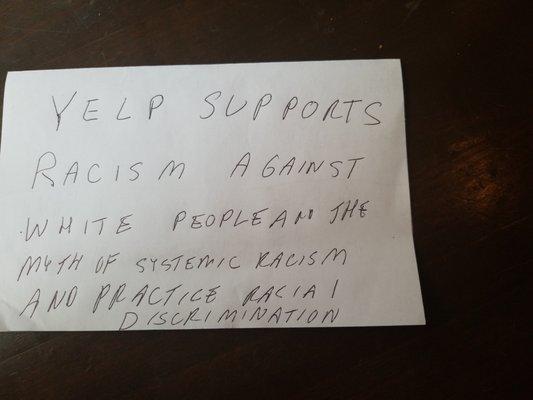 YELP SUPPORTS
RACISM AGAINST
WHITE PEOPLE AN THE
MYTH OF SYSTEMIC RACISM
AND PRACTICE RACIAL
DISCRIMINATION